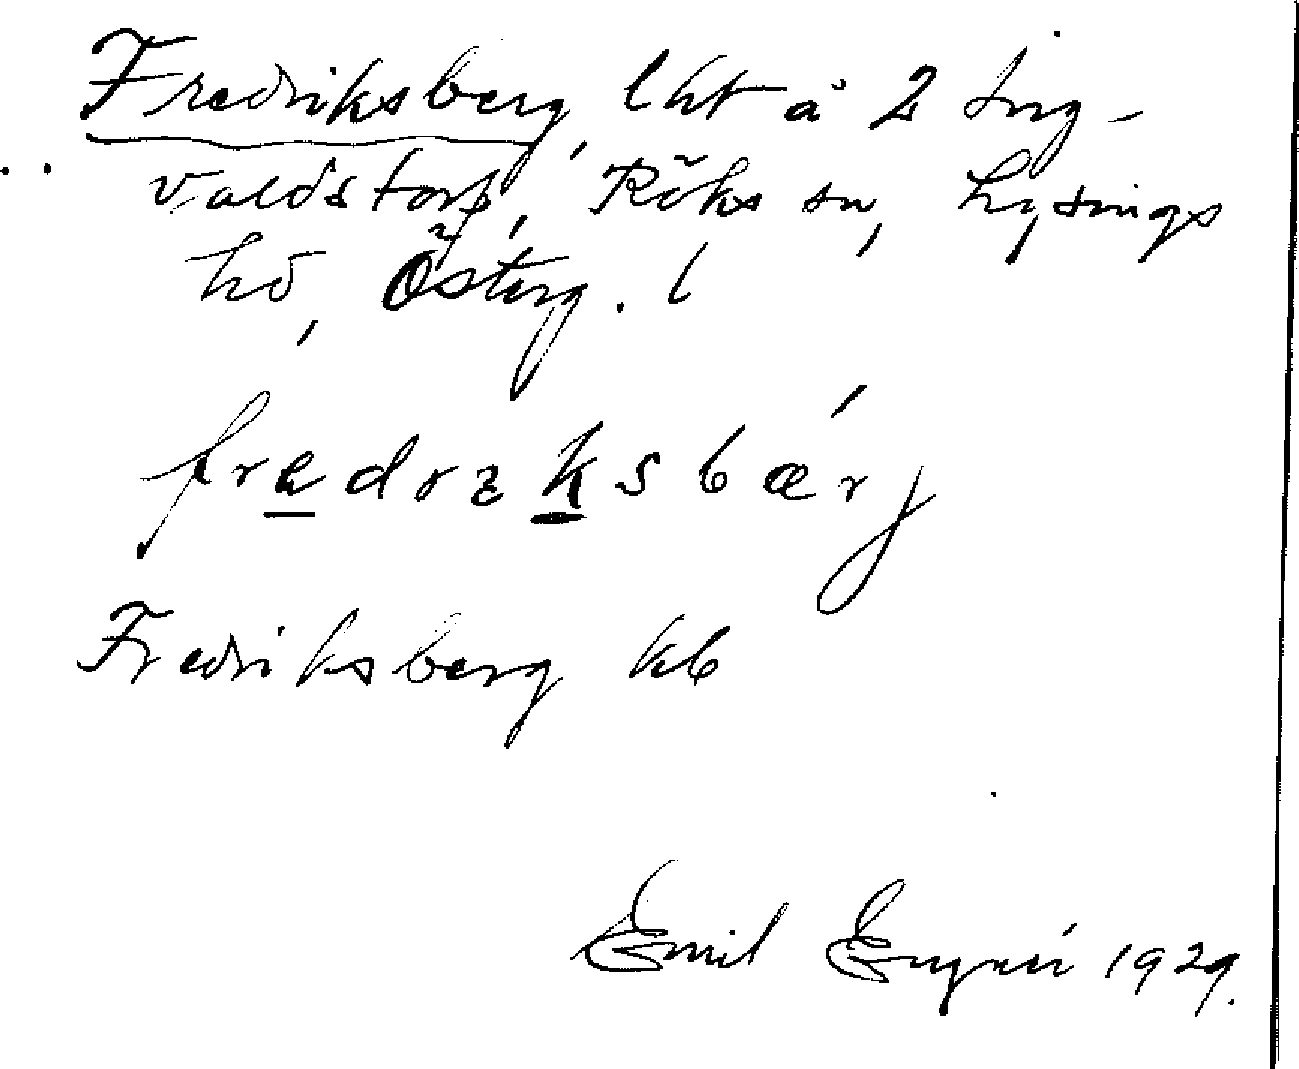 Fredriksberg, lht å 2 Ing-
valdstorp, Röks sn, Lysings
hd, Österg. l
fredrıksbærj
Fredriksberg kb
Emil 1929.